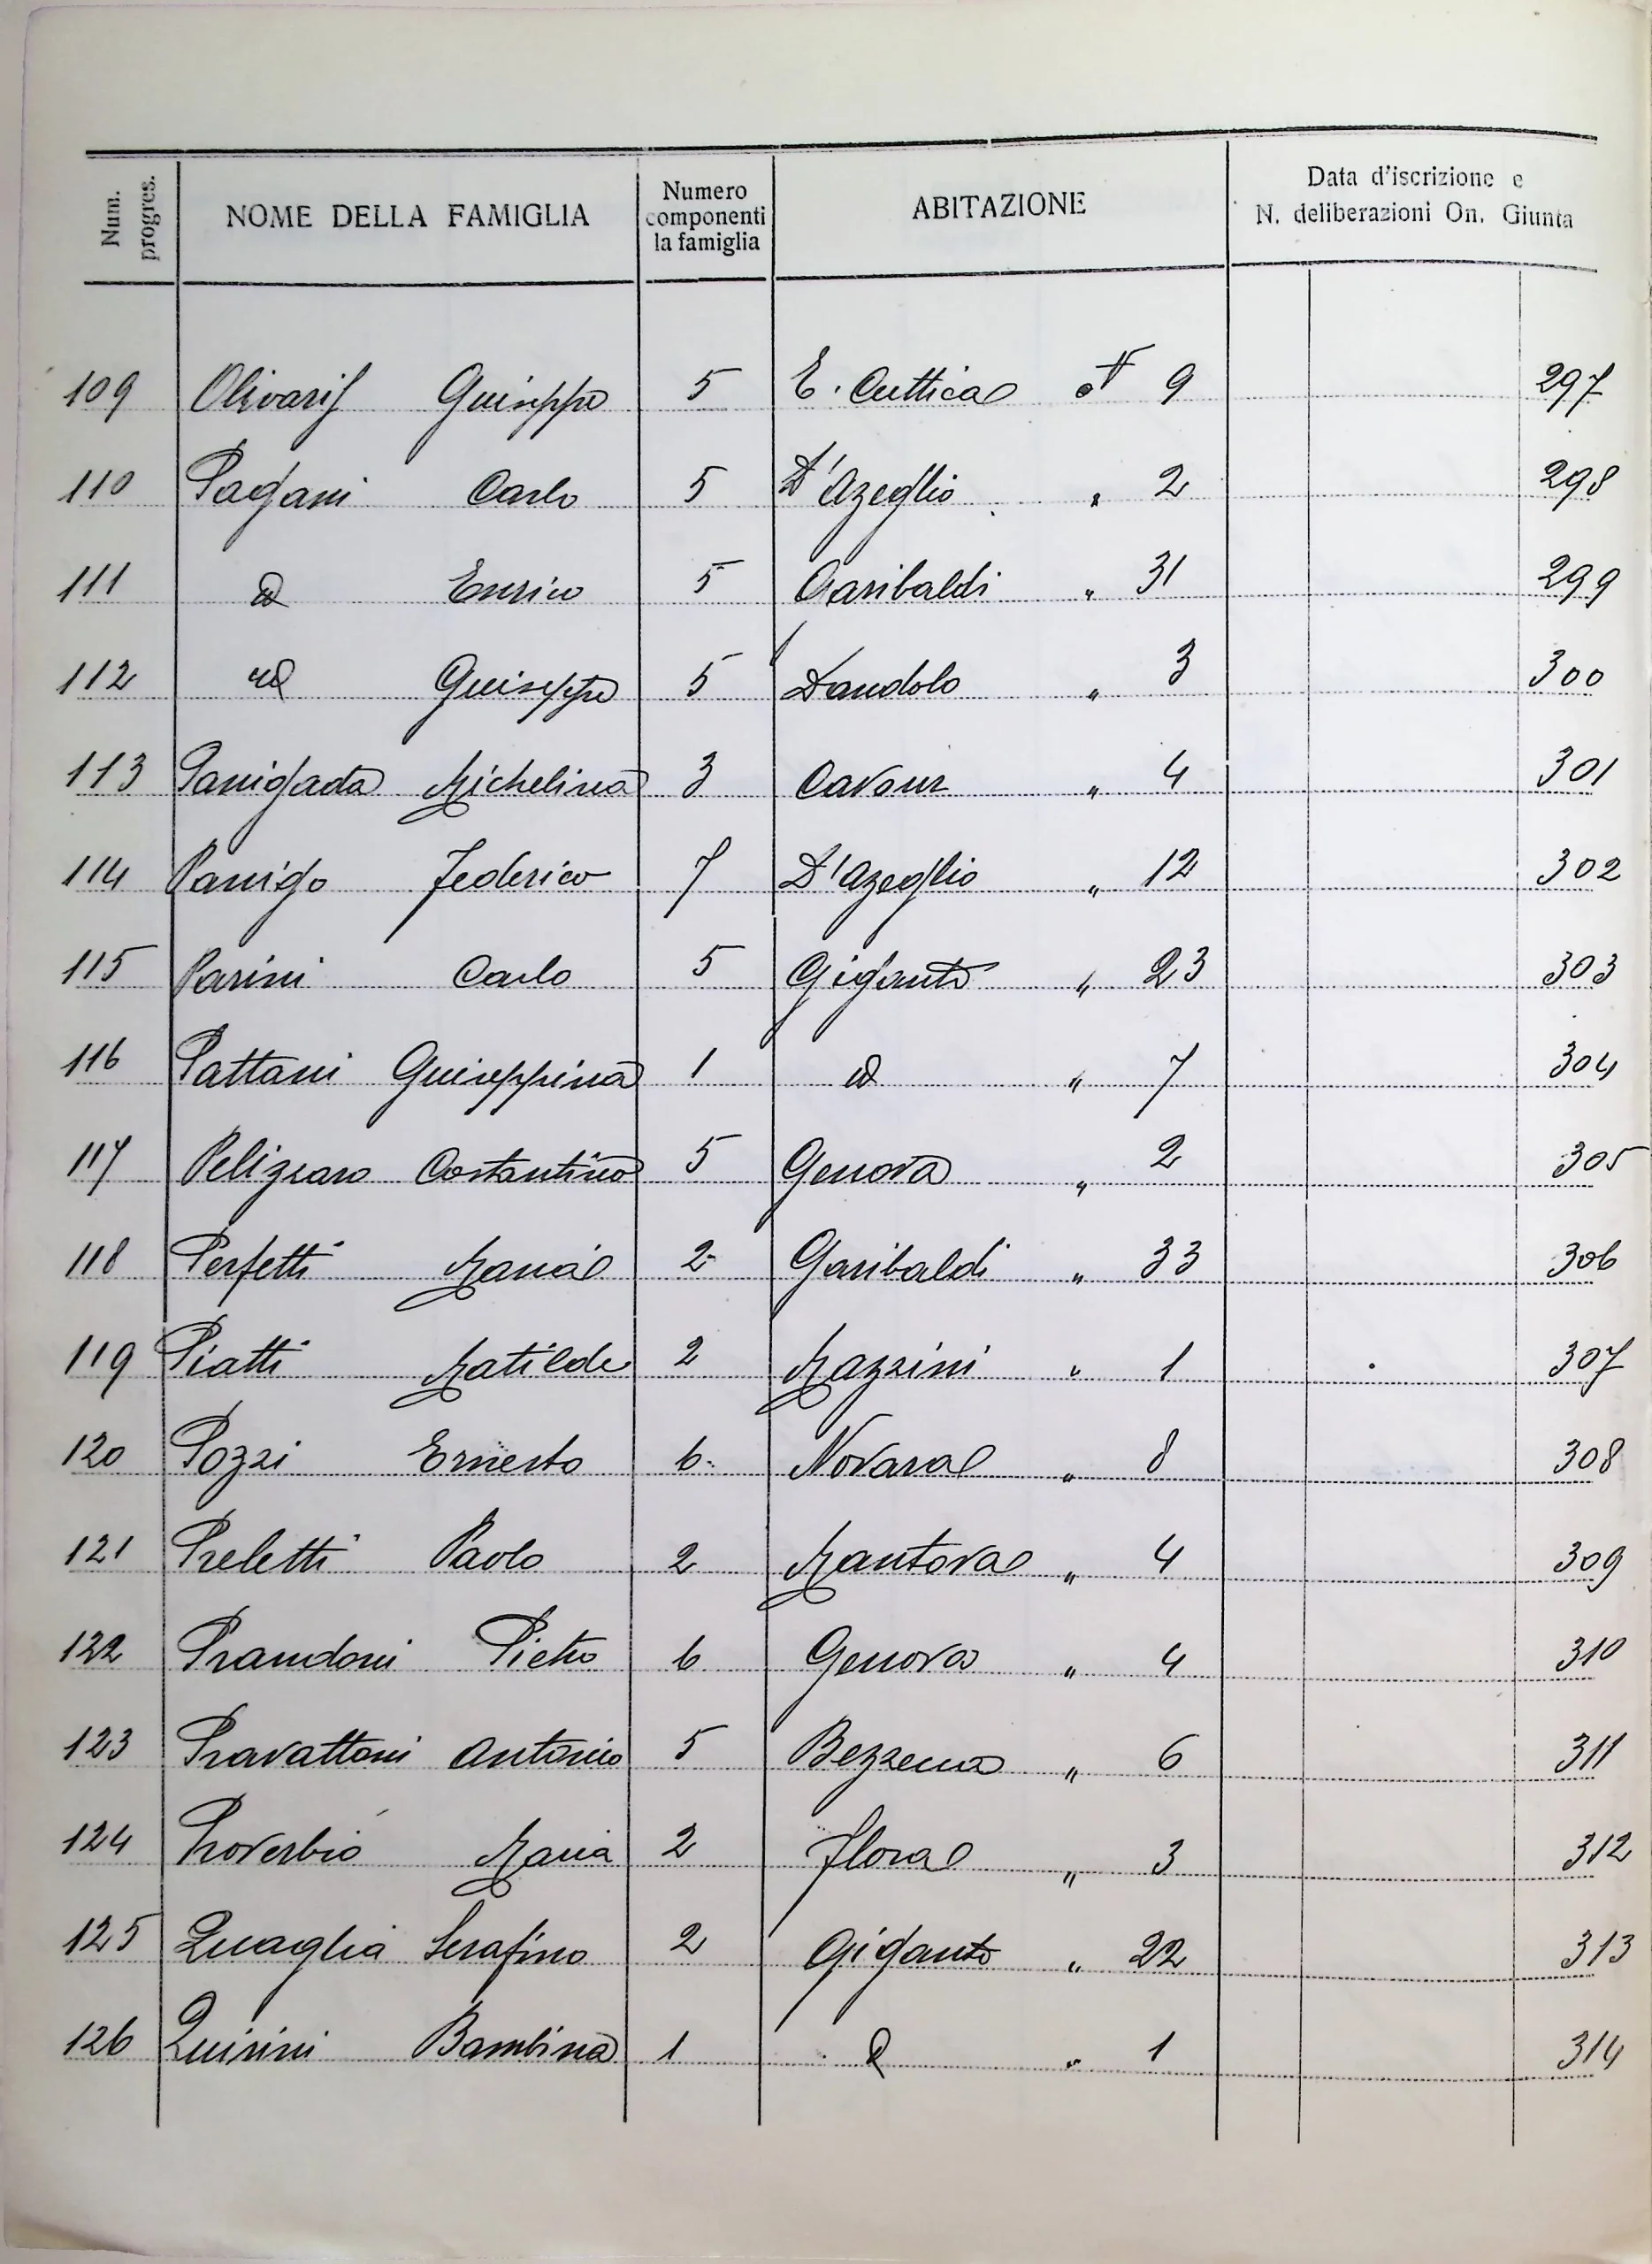 Num. progres. NOME DELLA FAMIGLIA Numero componenti la famiglia ABITAZIONE Data d'iscrizione e N. deliberazioni On. Giunta
109 Olivari Giuseppe 5 E. Cuttica N 9 297
110 Pagani Carlo 5 D'Azeglio " 2 298
111 id Enrico 5 Garibaldi " 31 299
112 id Giuseppe 5 Dandolo " 3 300
113 Panigada Michelina 3 Cavour " 4 301
114 Panigo Federico 7 D'Azeglio " 12 302
115 Parini Carlo 5 Gigante " 23 303
116 Pattani Giuseppina 1 id " 7 304
117 Pelizzaro Costantino 5 Genova " 2 305
118 Perfetti Maria 2 Garibaldi " 33 306
119 Piatti Matilde 2 Mazzini " 1 307
120 Pozzi Ernesto 6 Novara " 8 308
121 Preletti Paolo 2 Mantova " 4 309
122 Prandoni Pietro 6 Genova " 4 310
123 Pravattoni Antonio 5 Bezzecca " 6 311
124 Proverbio Maria 2 Flora " 3 312
125 Quaglia Serafino 2 Gigante " 22 313
126 Quirini Bambina 1 id " 1 314